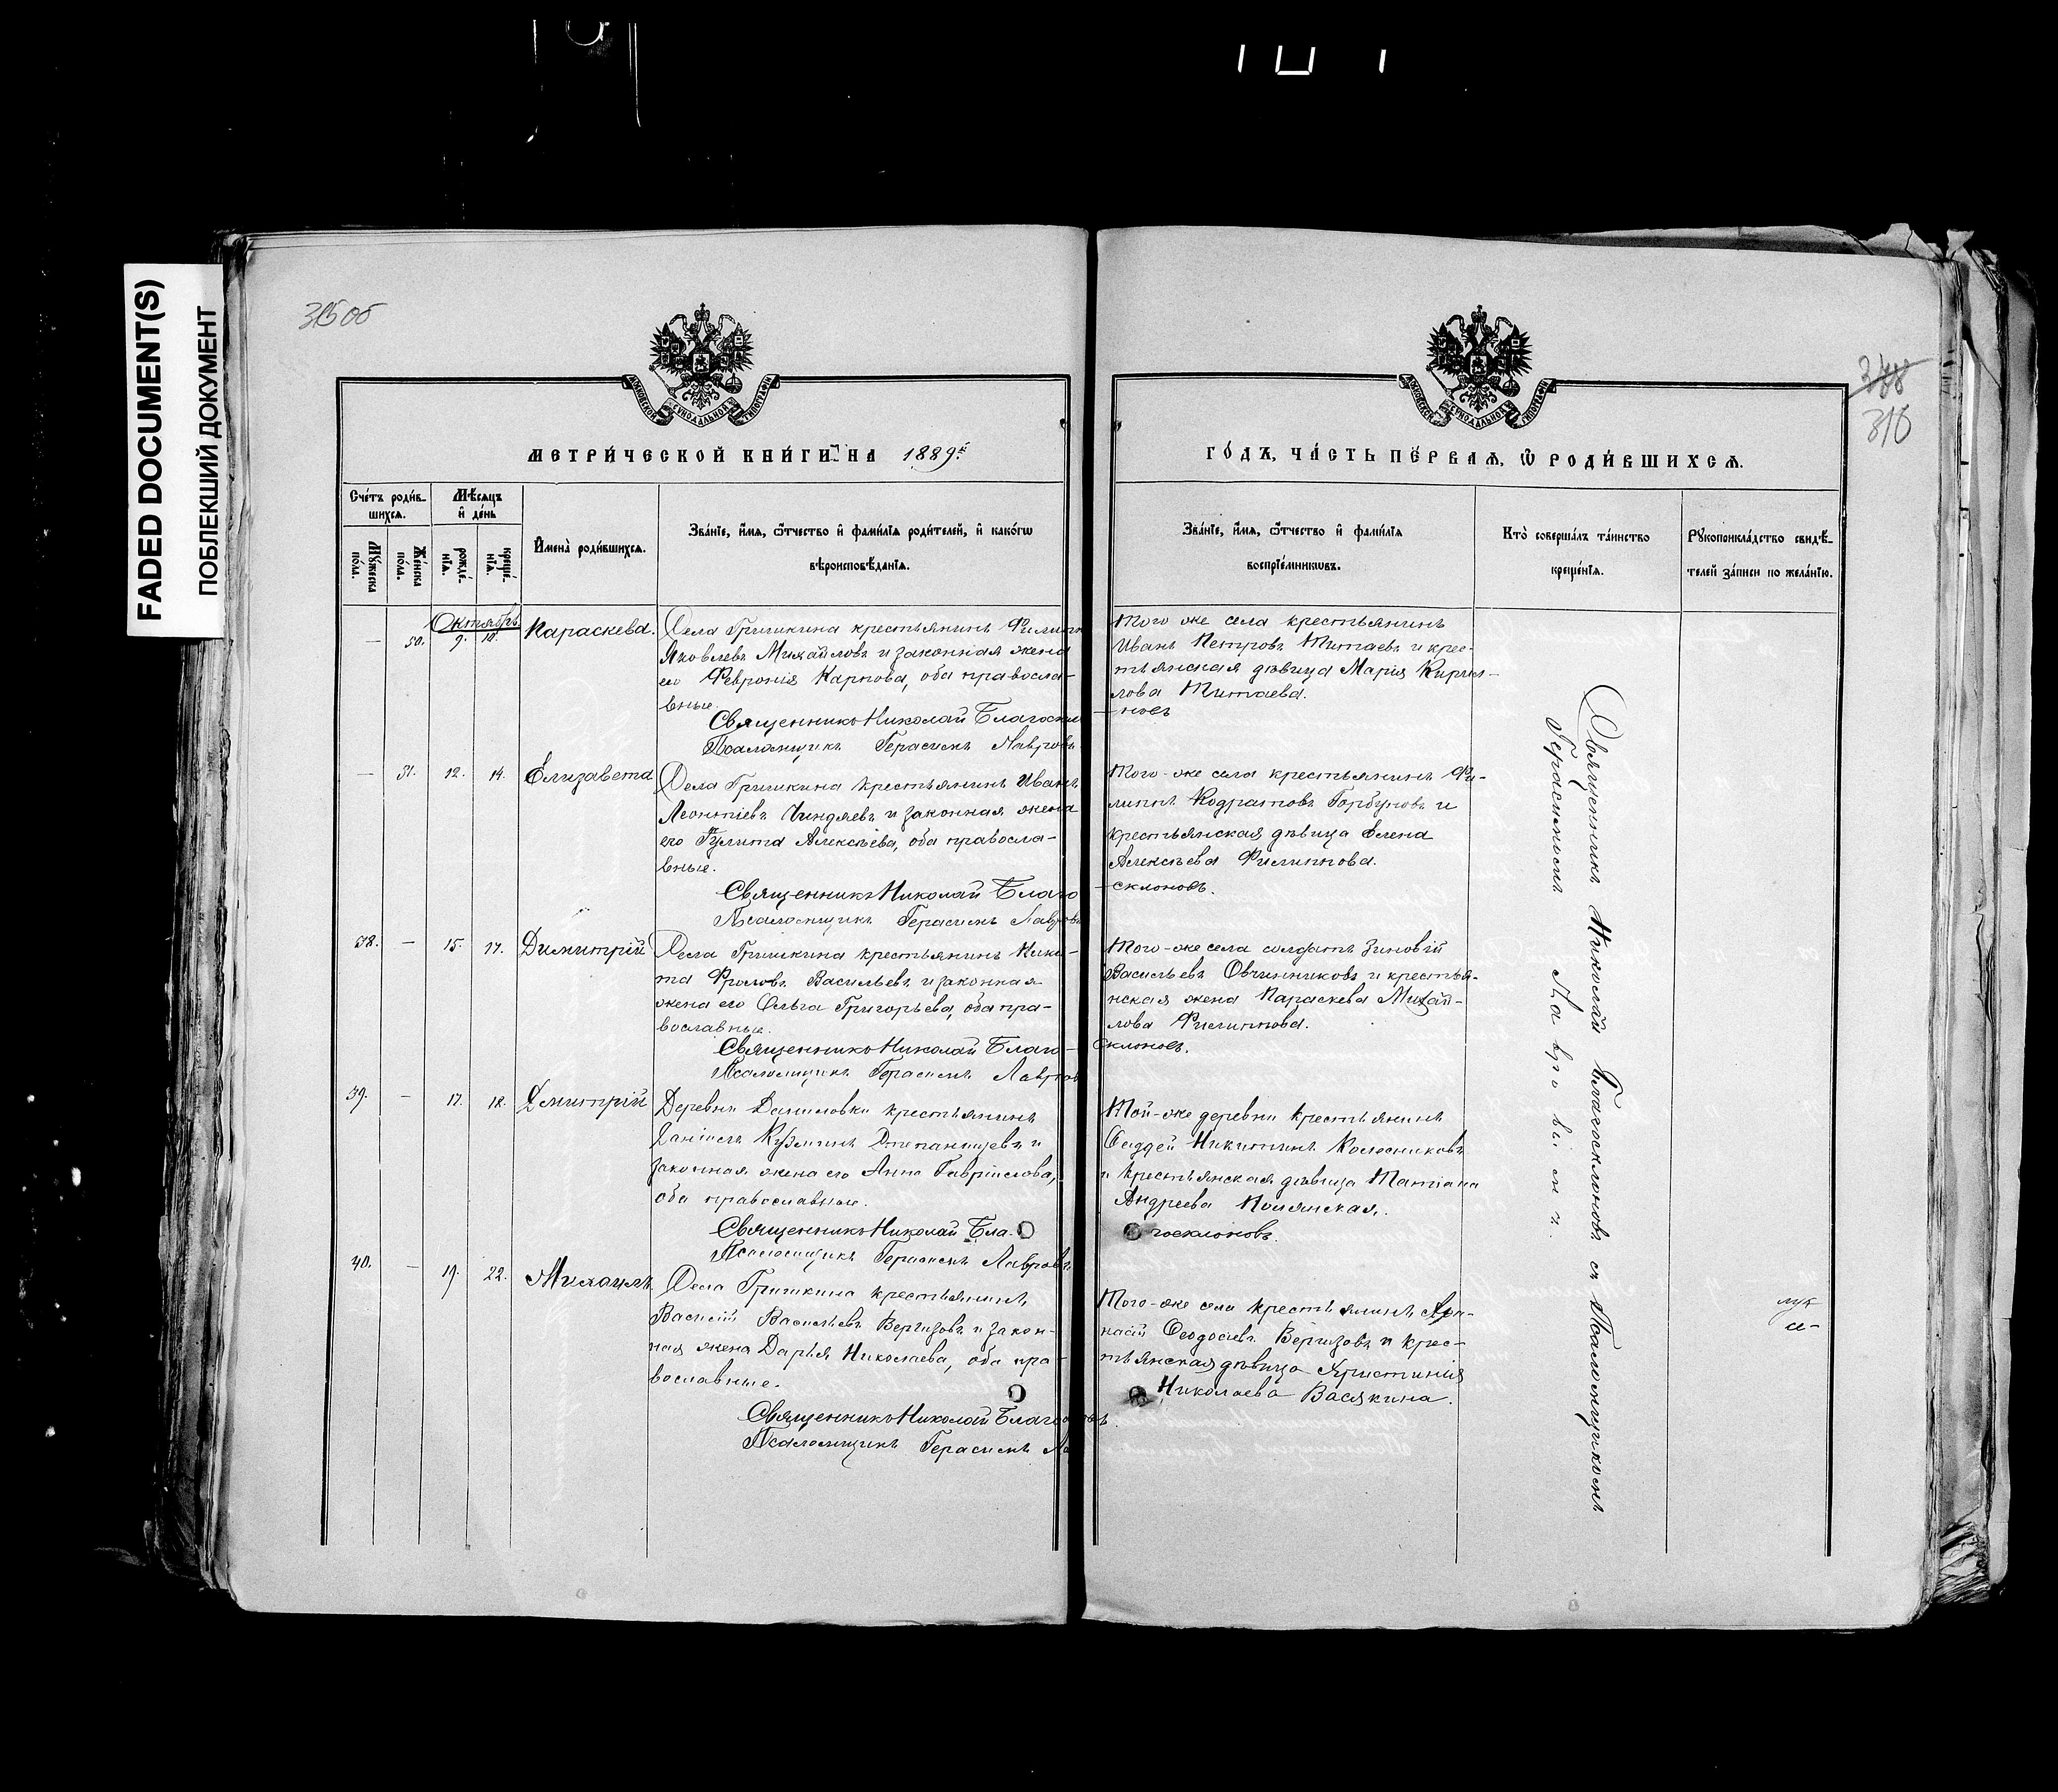 FADED DOCUMENT(S)
ПОБЛЕКШИЙ ДОКУМЕНТ
315об
316
МЕТРИ́ЧЕСКОЙ КНИ́ГИ НА 1889й
ГО́ДЪ, ЧА́СТЬ ПЕ́РВАЯ, Ѽ РОДИ́ВШИХСЯ.
Сче́тъ роди́в-
шихся.
Мѣ́сяцъ
и҆ де́нь
Мꙋ́жеска
по́ла.
Же́нска
по́ла.
рожде́-
нїя.
креще́-
нїя.
И҆мена̀ роди́вшихся.
Зва́нїе, и҆́мя, ѻ҆́тчество и҆ фами́лїя роди́телей, и҆ како́гѡ
вѣроисповѣ́данїя.
Зва́нїе, и҆́мя, ѻ҆́тчество и҆ фами́лїя
воспрїе́мникѡвъ.
Кто̀ соверша́лъ та́инство
креще́нїя.
Рꙋкоприкла́дство свидѣ́-
телей за́писи по жела́нїю.
Октябрь
— 50. 9. 10. Параскева.
Села Гришкина крестьянинъ Филипп
Яковлевъ Михайловъ и законная жена
его Феврония Карпова, оба правосла-
вные.
Священникъ Николай Благоскло
Псаломщикъ Герасимъ Лавровъ
Того же села крестьянинъ
Иванъ Петровъ Титаевъ и крес-
тьянская дѣвица Марія Кирил-
лова Титаева.
— новъ
— 51. 12. 14. Елизавета
Села Гришкина крестьянинъ Иванъ
Леонтіевъ Чиндяевъ и законная жена
его Іулита Алексѣева, оба правосла-
вные.
Священникъ Николай Благо
Псаломщикъ Герасимъ Лавровъ
Того-же села крестьянинъ Фи-
липпъ Кодратовъ Горбуновъ и
крестьянская дѣвица Елена
Алексѣева Филиппова.
— склоновъ.
38. — 15. 17. Димитрій
Села Гришкина крестьянинъ Ники-
та Фроловъ Васильевъ и законная
жена его Ольга Григорьева, оба пра-
вославные.
Священникъ Николай Благо-
Псаломщикъ Герасимъ Лавров
Того-же села солдатъ Зиновій
Васильевъ Овчинниковъ и крестья-
нская жена Параскева Михай-
лова Филиппова.
склоновъ.
39. — 17. 18. Димитрій
Деревни Даниловки крестьянинъ
Даніилъ Кузминъ Степанищевъ и
законная жена его Анна Гавріилова,
оба православные.
Священникъ Николай Бла-
Псаломщикъ Герасимъ Лавровъ
Той-же деревни крестьянинъ
Фаддей Никитинъ Колесниковъ
и крестьянская дѣвица Татіана
Андреева Полянская.
госклоновъ.
40. — 19. 22. Михаилъ.
Села Гришкина крестьянинъ
Василій Васильевъ Вергизовъ и закон-
ная жена Дарья Николаева, оба пра-
вославные.
Священникъ Николай Благо
Псаломщикъ Герасимъ Ла
Того-же села крестьянинъ
Феодосіевъ Вергизовъ и крес-
тьянская дѣвица Христинія
Николаева Васякина.
Священникъ Николай Благосклоновъ съ Псаломщикомъ
Герасимомъ Лавровымъ.